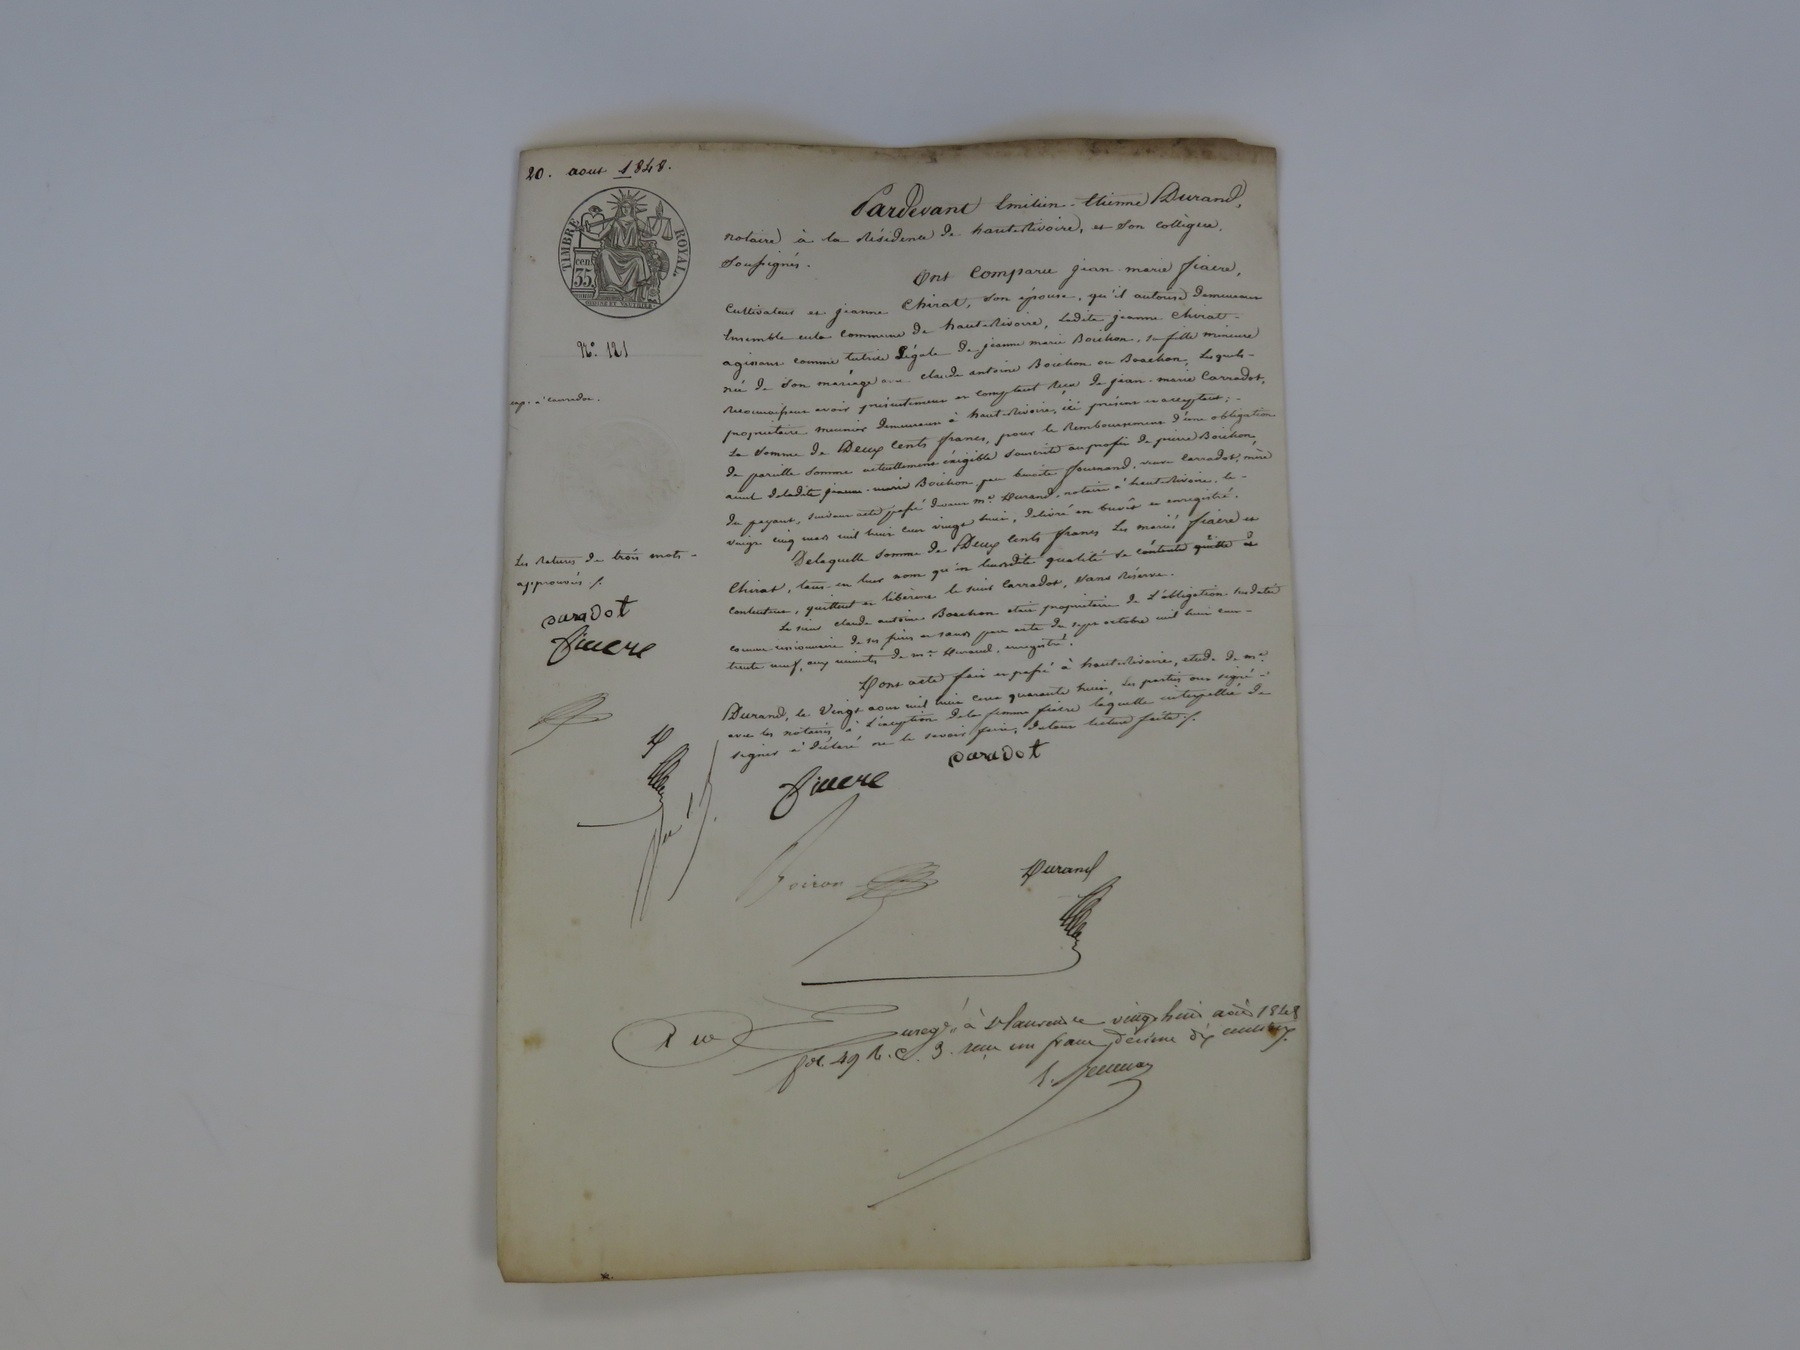 20. aout 1848.
TIMBRE ROYAL.
cen.
35
N.º 121
exp. à Carradot.
Pardevant Emilien-Etienne Durand,
notaire à la Résidence de haute-Rivoire, et son collègue,
soussignés.
Ont Comparu jean-marie fiacre,
Cultivateur et jeanne Chirat, son épouse, qu'il autorise demeurant
Ensemble en la Commune de haute-Rivoire, Ladite jeanne Chirat -
agissant comme tutrice Légale de jeanne marie Boichon, sa fille mineure
née de Son mariage avec claude antoine Boichon ou Bouchon, Lesquels -
Reconnaissent avoir présentement et comptant Reçu de jean-marie Carradot,
propriétaire meunier demeurant à haute-Rivoire, ici présent et acceptant ; -
La Somme de Deux Cents francs, pour le Remboursement d'une obligation
de pareille somme actuellement éxigible souscrite au profit de pierre Boichon,
aieul deladite jeanne-marie Boichon par benoite fournand, veuve Carradot, mère
du payant, suivant acte passé devant m.e Durand, notaire à haute-Rivoire, le -
vingt cinq mars mil huit cent vingt huit, délivré en brevêt et enregistré.
Delaquelle somme de Deux Cents francs Les mariés fiacre et
Chirat, tant en leur nom qu'en leurdite qualité se contente quitte de
contentent, quittent et libèrent le sieur Carradot, sans Réserve.
Le sieur claude antoine Bouchon était propriétaire de L'obligation susdatée
comme cessionnaire de ses frères et sœurs par acte du sept octobre mil huit cent -
trente neuf, aux minutes de m.e Durand, enregistré.
Dont acte fait et passé à haute-Rivoire, étude de m.e
Durand, le vingt aout mil huit cent quarante huit, Les parties ont signé -
avec les notaires à L'exception dela femme fiacre laquelle interpellée de
signer à déclaré ne le savoir faire, detout lecture faite ./.
Les Ratures de trois mots -
approuvées ./.
caradot
fiacre
D
fiacre
caradot
Boiron
Durand
Enregé à St laurent le vingt huit août 1848
fol. 49 R. C. 3. reçu un franc décime dix centimes.